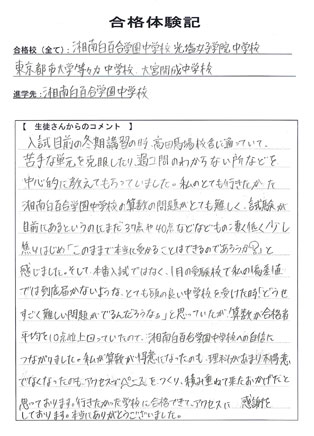 合格体験記
合格校（全て）：湘南白百合学園中学校 光塩女子学院中学校
東京都市大学等々力中学校、大宮開成中学校
進学先：湘南白百合学園中学校
【 生徒さんからのコメント 】
入試目前の冬期講習の時、高田馬場校舎に通っていて、
苦手な単元を克服したり、過去問のわからない所などを
中心的に教えてもらっていました。私のとても行きたかった
湘南白百合学園中学校の算数の問題がとても難しく、試験が
目前にあるというのにまだ37点や40点などなどもの数低く少し
焦りはじめ「このままで本当に受かることはできるのであろうか？」と
感じました。そして、本番入試ではなく、1月の受験校で私の偏差値
では到底届かないような、とても頭の良い中学校を受けた時「どうせ
すごく難しい問題がでるんだろうな」と思っていたが算数が合格者
平均を10点以上回っていたので、湘南白百合学園中学校への自信に
つながりました。私が算数が得意になったのも、理科があまり不得意
でなくなったのも、アクセスでペースをつくり、積み重ねて来たおかげだと
思っております。行きたかった学校に合格できて、アクセスに 感謝を
しております。本当にありがとうございました。